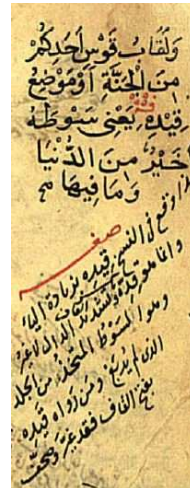 وَلَقَابُ قَوْسِ أَحَدِكُمْ
مِنَ الْجَنَّةِ أَوْ مَوْضِعُ
قِيْدِهِ يَعْنِي سَوْطَهُ
خَيْرٌ مِنَ الدُّنْيَا
وَمَا فِيهَا
صغير
وقع في النسخ قيده بزيادة الياء
وانما هو قده وتشديد الدال لا غير
وهو السوط المتخذ من الجلد
الذي لم يدبغ ومن رواه قيده
بفتح القاف فقد غير وصحف